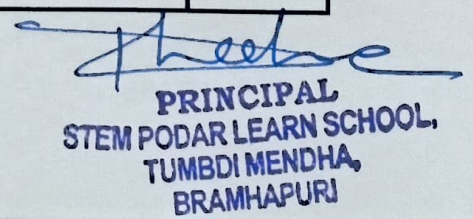 PRINCIPAL
STEM PODAR LEARN SCHOOL,
TUMBDI MENDHA,
BRAMHAPURI